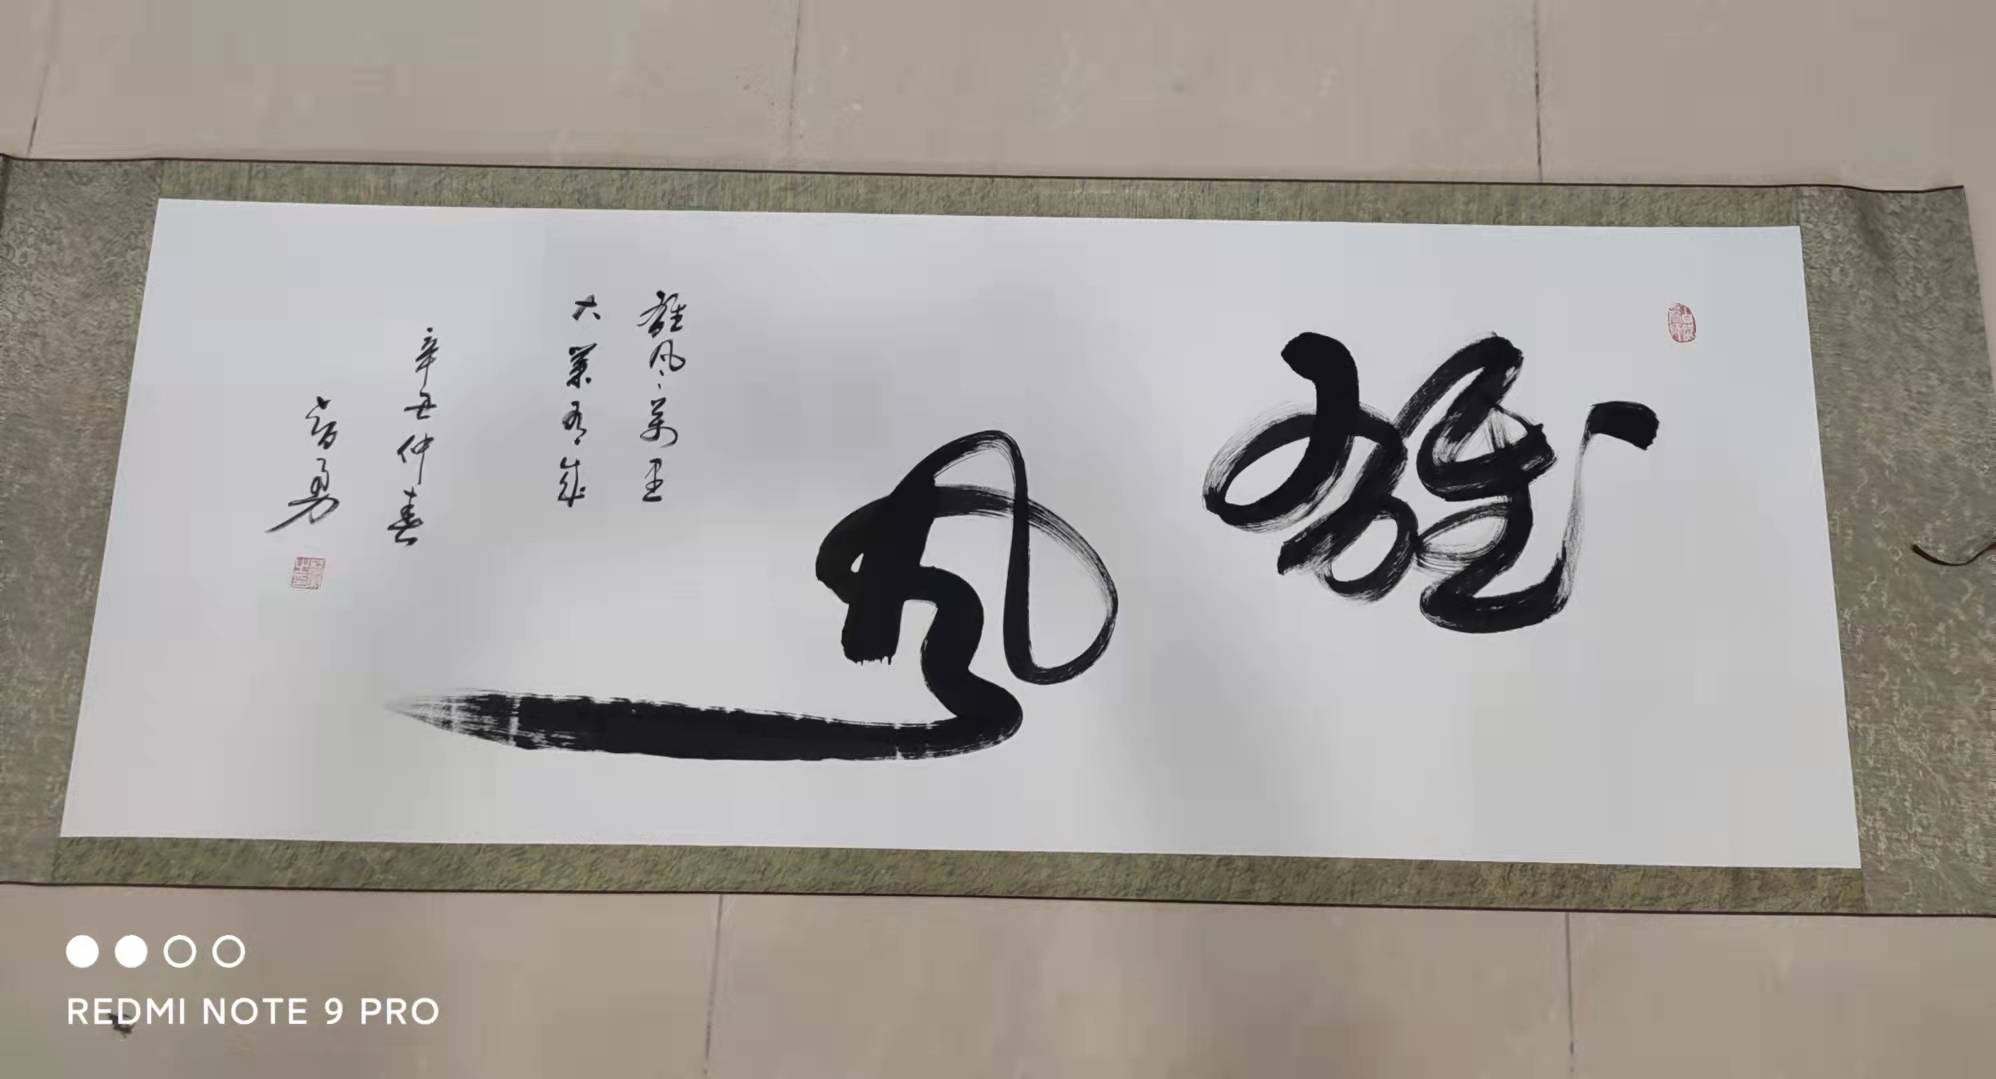 雄风
雄风万里
大业有成
辛丑仲春
智勇
REDMI NOTE 9 PRO